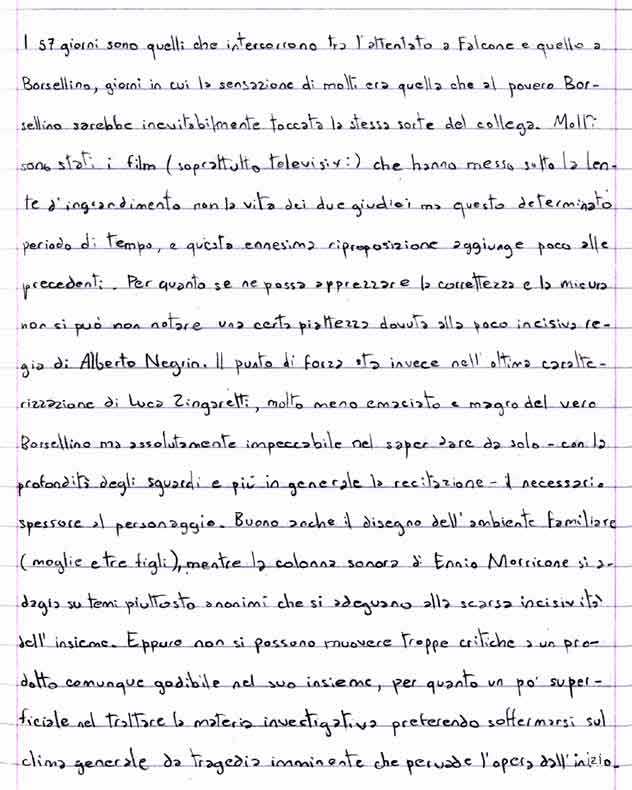 I 57 giorni sono quelli che intercorrono tra l'attentato a Falcone e quello a
Borsellino, giorni in cui la sensazione di molti era quella che al povero Bor-
sellino sarebbe inevitabilmente toccata la stessa sorte del collega. Molti
sono stati i film (soprattutto televisivi) che hanno messo sotto la len-
te d'ingrandimento non la vita dei due giudici ma questo determinato
periodo di tempo, e questa ennesima riproposizione aggiunge poco alle
precedenti. Per quanto se ne possa apprezzare la correttezza e la misura
non si può non notare una certa piattezza dovuta alla poco incisiva re-
gia di Alberto Negrin. Il punto di forza sta invece nell'ottima caratte-
rizzazione di Luca Zingaretti, molto meno emaciato e magro del vero
Borsellino ma assolutamente impeccabile nel saper dare da solo - con la
profondità degli sguardi e più in generale la recitazione - il necessario
spessore al personaggio. Buono anche il disegno dell'ambiente familiare
(moglie e tre figli), mentre la colonna sonora di Ennio Morricone si a-
dagia su temi piuttosto anonimi che si adeguano alla scarsa incisività
dell'insieme. Eppure non si possono muovere troppe critiche a un pro-
dotto comunque godibile nel suo insieme, per quanto un po' super-
ficiale nel trattare la materia investigativa preferendo soffermarsi sul
clima generale da tragedia imminente che pervade l'opera dall'inizio.